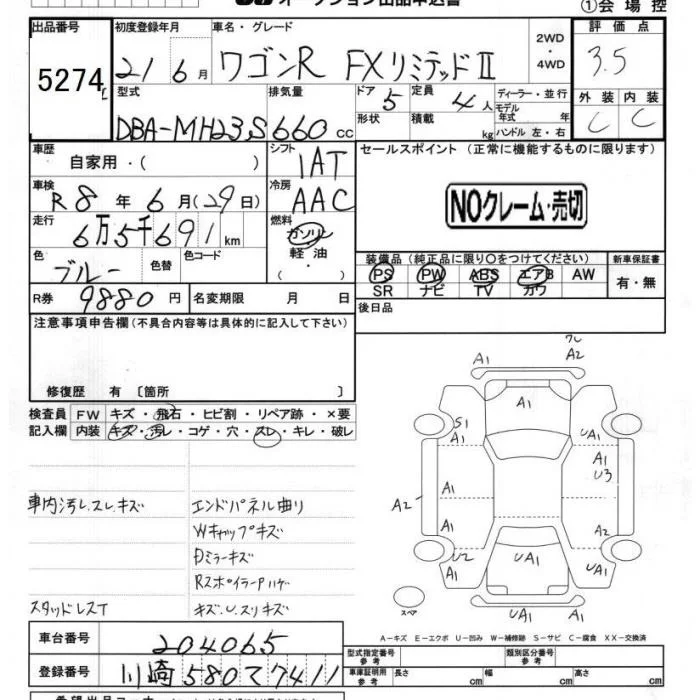 オークション出品申込書
①会場控
出品番号 初度登録年月 車名・グレード 評価点
5274 21 6月 ワゴンR FXリミテッドⅡ 2WD・4WD 3.5
型式 排気量 ドア 5 定員 4人 ディーラー・並行 外装 内装
DBA-MH23S 660cc 形状 積載 kg モデル年式 年 C C
ハンドル 左・右
車歴 自家用・( ) シフト IAT セールスポイント (正常に機能するものに限ります)
車検 R8年6月(29日) 冷房 AAC NOクレーム・売切
走行 6万5千691km 燃料 ガソリン・軽油・( )
色 ブルー 色替 色コード
装備品 (純正品に限り○をつけてください) 新車保証書
PS PW ABS エアB AW 有・無
SR ナビ TV カワ
R券 9880円 名変期限 月 日 後日品
注意事項申告欄(不具合内容等は具体的に記入して下さい)
修復歴 有〔箇所 〕
検査員 FW キズ・飛石・ヒビ割・リペア跡・×要
記入欄 内装 キズ・汚レ・コゲ・穴・スレ・キレ・破レ
A1 A2
A1
S1 A1 UA1
A1 A1 U3
A2 A1
A1 A2
U2 A1 UA1 UA1
UA1 A1
スペア
車内汚レ.スレ.キズ エンドパネル曲り
Wキャップキズ
Dミラーキズ
RスポイラーPハゲ
スタッドレスT キズ.U.スリキズ
A-キズ E-エクボ U-凹み W-補修跡 S-サビ C-腐食 XX-交換済
車台番号 204065 型式指定番号 参考 類別区分番号 参考
登録番号 川崎580て7411 車庫証明用 参考 長さ cm 幅 cm 高さ cm